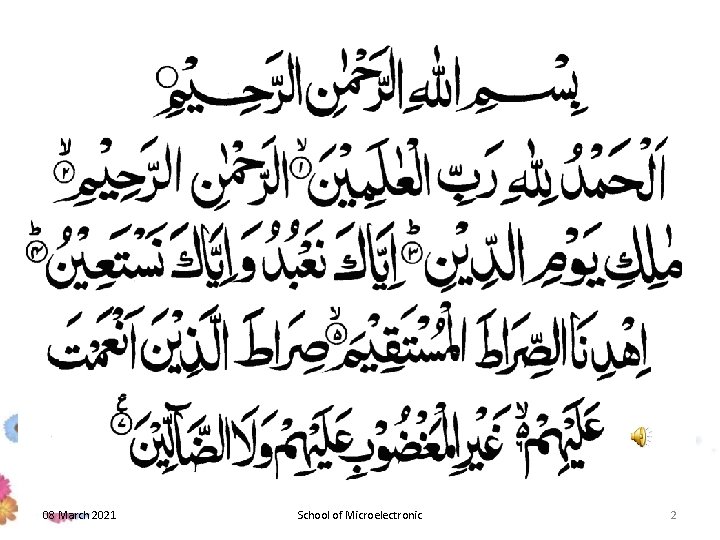 بِسْمِ اللهِ الرَّحْمٰنِ الرَّحِيْمِ
اَلْحَمْدُ لِلّٰهِ رَبِّ الْعٰلَمِيْنَ ۙ﴿۱﴾ الرَّحْمٰنِ الرَّحِيْمِ ۙ﴿۲﴾
مٰلِكِ يَوْمِ الدِّيْنِ ؕ﴿۳﴾ اِيَّاكَ نَعْبُدُ وَاِيَّاكَ نَسْتَعِيْنُ ؕ﴿۴﴾
اِهْدِنَا الصِّرَاطَ الْمُسْتَقِيْمَ ۙ﴿۵﴾ صِرَاطَ الَّذِيْنَ اَنْعَمْتَ
عَلَيْهِمْ ۙ۬﴿۶﴾ غَيْرِ الْمَغْضُوْبِ عَلَيْهِمْ وَلَا الضَّآلِّيْنَ ﴿۷﴾ ع
08 March 2021 School of Microelectronic 2